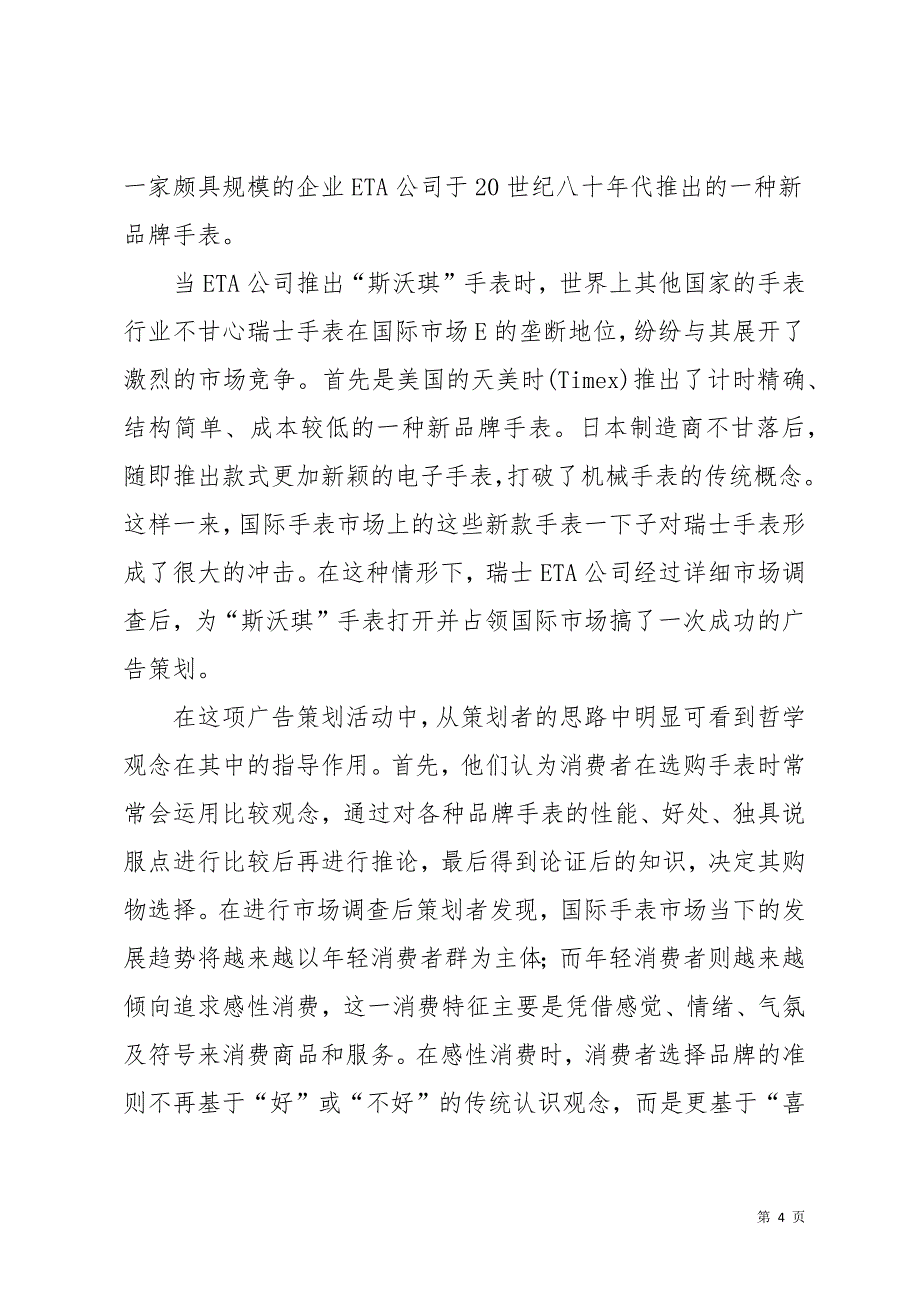 一家颇具规模的企业 ETA 公司于 20 世纪八十年代推出的一种新
品牌手表。
当 ETA 公司推出“斯沃琪”手表时，世界上其他国家的手表
行业不甘心瑞士手表在国际市场 E 的垄断地位，纷纷与其展开了
激烈的市场竞争。首先是美国的天美时(Timex)推出了计时精确、
结构简单、成本较低的一种新品牌手表。日本制造商不甘落后，
随即推出款式更加新颖的电子手表，打破了机械手表的传统概念。
这样一来，国际手表市场上的这些新款手表一下子对瑞士手表形
成了很大的冲击。在这种情形下，瑞士 ETA 公司经过详细市场调
查后，为“斯沃琪”手表打开并占领国际市场搞了一次成功的广
告策划。
在这项广告策划活动中，从策划者的思路中明显可看到哲学
观念在其中的指导作用。首先，他们认为消费者在选购手表时常
常会运用比较观念，通过对各种品牌手表的性能、好处、独具说
服点进行比较后再进行推论，最后得到论证后的知识，决定其购
物选择。在进行市场调查后策划者发现，国际手表市场当下的发
展趋势将越来越以年轻消费者群为主体；而年轻消费者则越来越
倾向追求感性消费，这一消费特征主要是凭借感觉、情绪、气氛
及符号来消费商品和服务。在感性消费时，消费者选择品牌的准
则不再基于“好”或“不好”的传统认识观念，而是更基于“喜
第 4 页